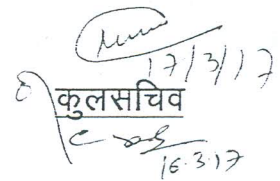 17/3/17
कुलसचिव
16.3.17